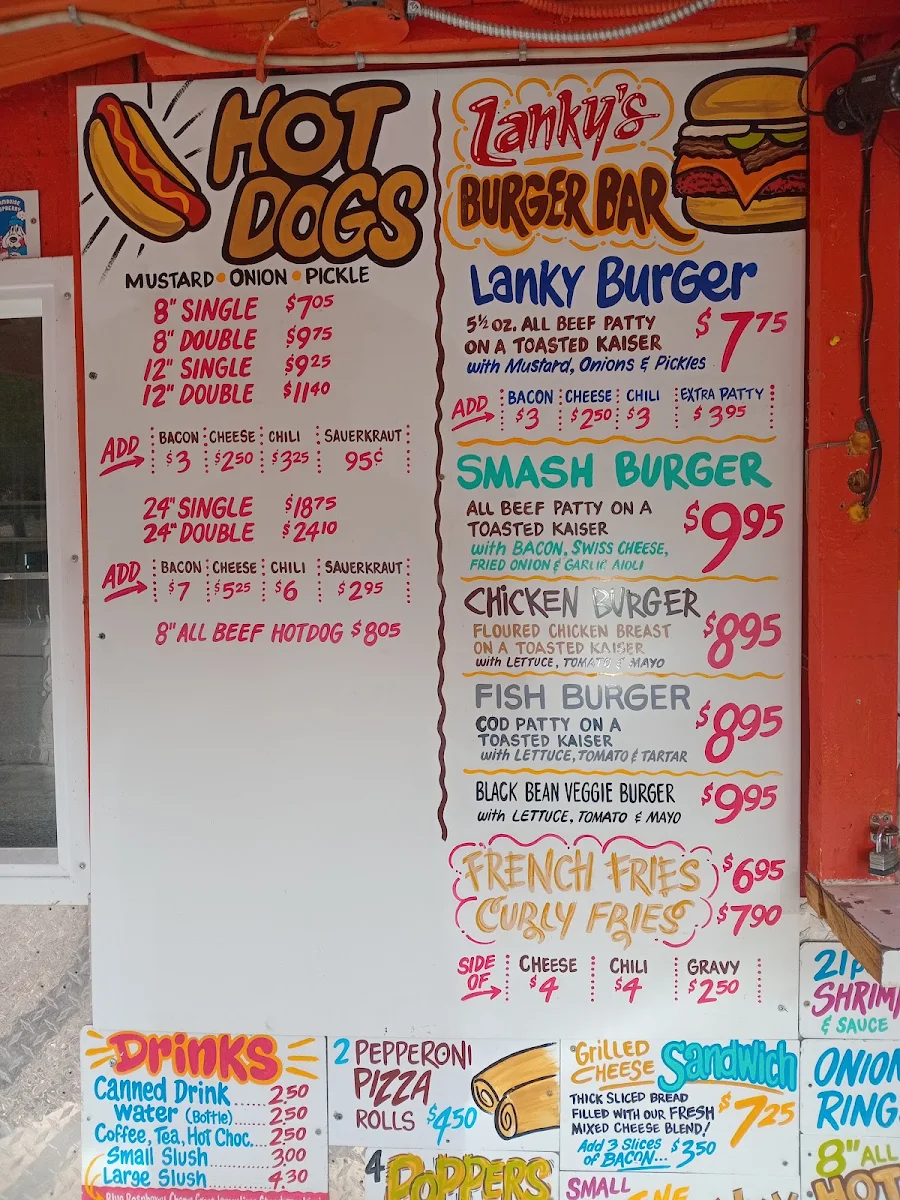 HOT
DOGS
MUSTARD • ONION • PICKLE
8" SINGLE $7.05
8" DOUBLE $9.75
12" SINGLE $9.25
12" DOUBLE $11.40
ADD BACON CHEESE CHILI SAUERKRAUT
$3 $2.50 $3.25 95¢
24" SINGLE $18.75
24" DOUBLE $24.10
ADD BACON CHEESE CHILI SAUERKRAUT
$7 $5.25 $6 $2.95
8" ALL BEEF HOTDOG $8.05
Lanky's
BURGER BAR
LANKY BURGER
5½ OZ. ALL BEEF PATTY
ON A TOASTED KAISER
with Mustard, Onions & Pickles
$7.75
ADD BACON CHEESE CHILI EXTRA PATTY
$3 $2.50 $3 $3.95
SMASH BURGER
ALL BEEF PATTY ON A
TOASTED KAISER
with BACON, SWISS CHEESE,
FRIED ONION & GARLIC AIOLI
$9.95
CHICKEN BURGER
FLOURED CHICKEN BREAST
ON A TOASTED KAISER
with LETTUCE, TOMATO & MAYO
$8.95
FISH BURGER
COD PATTY ON A
TOASTED KAISER
with LETTUCE, TOMATO & TARTAR
$8.95
BLACK BEAN VEGGIE BURGER
with LETTUCE, TOMATO & MAYO
$9.95
FRENCH FRIES $6.95
CURLY FRIES $7.90
SIDE OF CHEESE CHILI GRAVY
$4 $4 $2.50
Drinks
Canned Drink 2.50
Water (Bottle) 2.50
Coffee, Tea, Hot Choc... 2.50
Small Slush 3.00
Large Slush 4.30
2 PEPPERONI
PIZZA
ROLLS $4.50
4 POPPERS
GRILLED
CHEESE Sandwich
THICK SLICED BREAD
FILLED WITH OUR FRESH
MIXED CHEESE BLEND!
$7.25
Add 3 Slices
of BACON... $3.50
SMALL
SHRIM
& SAUCE
ONION
RING
8" ALL
HOT